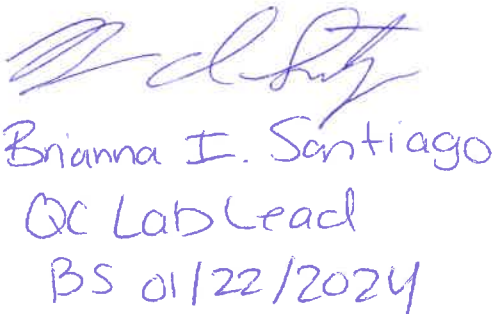 Brianna I. Santiago
QC Lab Lead
BS 01/22/2024